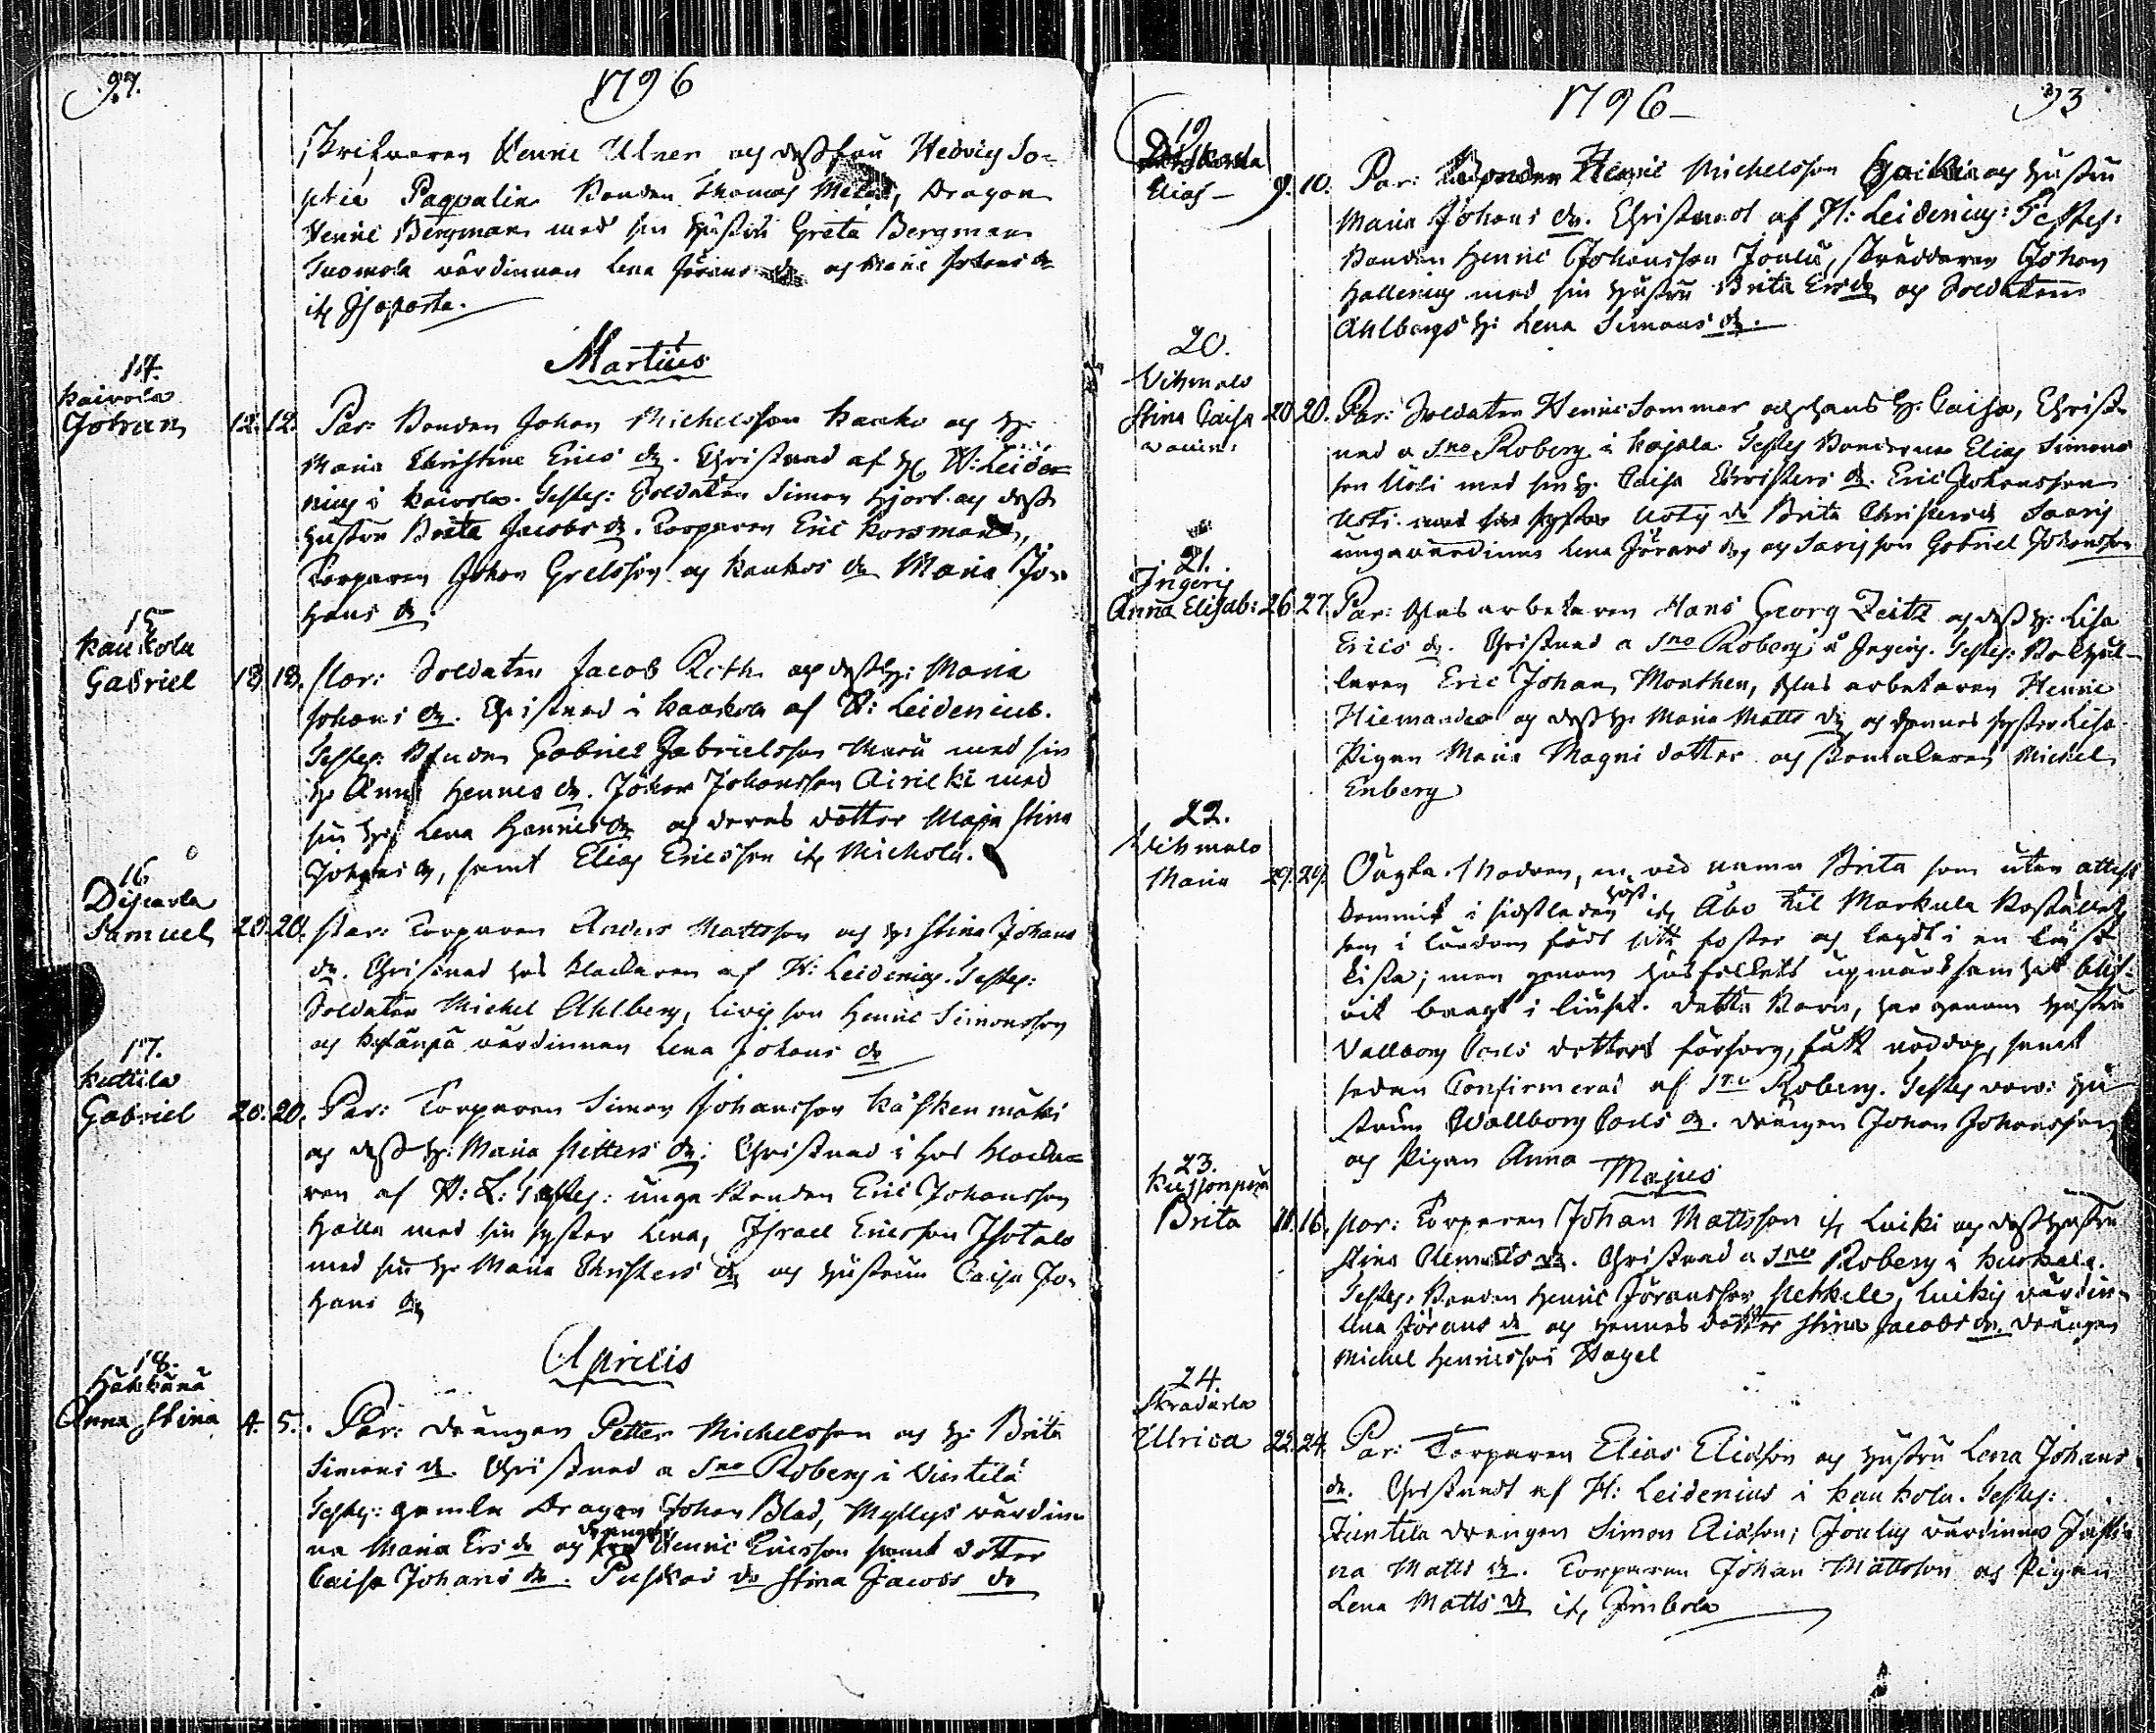 97.
1796
Skrifvaren Henric Ulner och dess fru Hedvig So-
phia Paqvalin Bonden Thomas, Dragon
Henric Bergman med sin hustru Greta Bergman
Tuomola värdinnan Lena Jörans dr och Maria Johans dr
ifr Isoporta.
Martius
14.
Kaivola
Johan
12. 12. Par: Bonden Johan Michelsson Kauko och H:
Maria Christina Erics dr. Christnad af H: Leide-
nius i Kaivola. Testes: Soldaten Simon Hjort och dess
hustru Brita Jacobs dr. Torparen Eric Korsman,
Torparen Johan Grelsson och Kaukos dr Maria Jo-
hans dr
15
Kaukola
Gabriel
18. 18. Par: Soldaten Jacob Reth och dess H: Maria
Johans dr. Christnad i Kaukola af H: Leidenius.
Testes: Bonden Gabriel Gabrielsson med sin
H: Anna Henrics dr. Johan Johansson Airicki med
sin H: Lena Henrics dr och deras dotter Maja Stina
Johans dr, samt Elias Ericsson ifr Michola.
16
Samuel
20. 20. Par: Torparen Anders Mattsson och H: Stina Johans
dr. Christnad hos klockaren af H: Leidenius. Testes:
Soldaten Michel Ahlberg, son Henric Simonsson
och värdinnan Lena Johans dr
17.
Kuttila
Gabriel
20. 20. Par: Torparen Simon Johansson
och dess H: Maria Petters dr: Christnad i hos klocka-
ren af H: L: Testes: unga Bonden Eric Johansson
Halla med sin syster Lena, Israel Ericsson Isotalo
med sin H: Maria Christers dr och hustrun Caisa Jo-
hans dr
Aprilis
18.
Anna Stina
4. 5. Par: Drängen Petter Michelsson och H: Brita
Simons dr. Christnad a Sno Roberg i Vintilä
Testes: gamla Dragon Johan Blad, Myllys värdin-
na Maria Ers dr och drängen Henric Ericsson samt dotter
Caisa Johans dr. Puskas dr Stina Jacobs dr
1796
93
19
Elias
9. 10. Par: Bonden Henric Michelsson och hustru
Maria Johans dr. Christnad af H: Leidenius: Testes:
Bonden Henric Johansson Joulu, skräddaren Johan
Hallenius med sin hustru Brita Ers dr och Soldaten
Ahlbergs H: Lena Simons dr.
20.
Vihmalo
Stina Caisa
20 20. Par: Soldaten Henric Sommar och hans H: Caisa, Christ-
nad a Sno Roberg i Kojola. Testes Bönderne Elias Simons
son Uoti med sin H. Caisa Christers dr. Eric Johansson
Uoti. Uotis dr Brita Christers dr Saaris
unga värdinna Lena Jörans dr, och Saaris son Gabriel Johansson
21.
Ingeris
Anna Elisab:
26. 27. Par: Glas arbetaren Hans Georg Zeitz och dess H: Lisa
Erics dr. Christnad a Sno Roberg i Ingeris. Testes: Bokhål-
laren Eric Johan Monthen, Glas arbetaren Henric
Hiemander och dess H: Maria Matts dr och dennes syster Lisa.
Pigan Maria Magni dotter och Michel
Enberg
22.
Vihmalo
Maria
29. 29. Oägta. Modren, en vid namn Brita som utan attest
kommit i sidstleden höst ifr Åbo til Markula Bostället
som i löndom födt sitt foster och lagdt i en
kista; men genom husfolkets upmärksamhet blif-
vit bragt i ljuset. Detta Barn, har genom hustru
Vallborg Carls dotters försorg, fått nöddop, samt
sedan Confirmerad af Sno Roberg. Testes voro: hu-
strun Wallborg Carls dr. Drängen Johan Johansson
och Pigan Anna
Majus
23.
Brita
16. Par: Torparen Johan Mattsson ifr Luiki och dess hustru
Stina Clemets dr. Christnad a Sno Roberg i Kuskala.
Testes: Bonden Henric Jöransson Pekkele, Luikis värdin-
Lena Jörans dr och hennes dotter Stina Jacobs dr. Drängen
Michel Henricsson Hagel
24.
Ulrica
22. 24. Par: Torparen Elias Eliasson och hustru Lena Johans
dr. Christnadt af H: Leidenius i Kaukola. Testes:
drängen Simon Eliasson; Joulus värdinna Justi-
na Matts dr. Torparen Johan Mattsson och Pigan
Lena Matts dr ifr